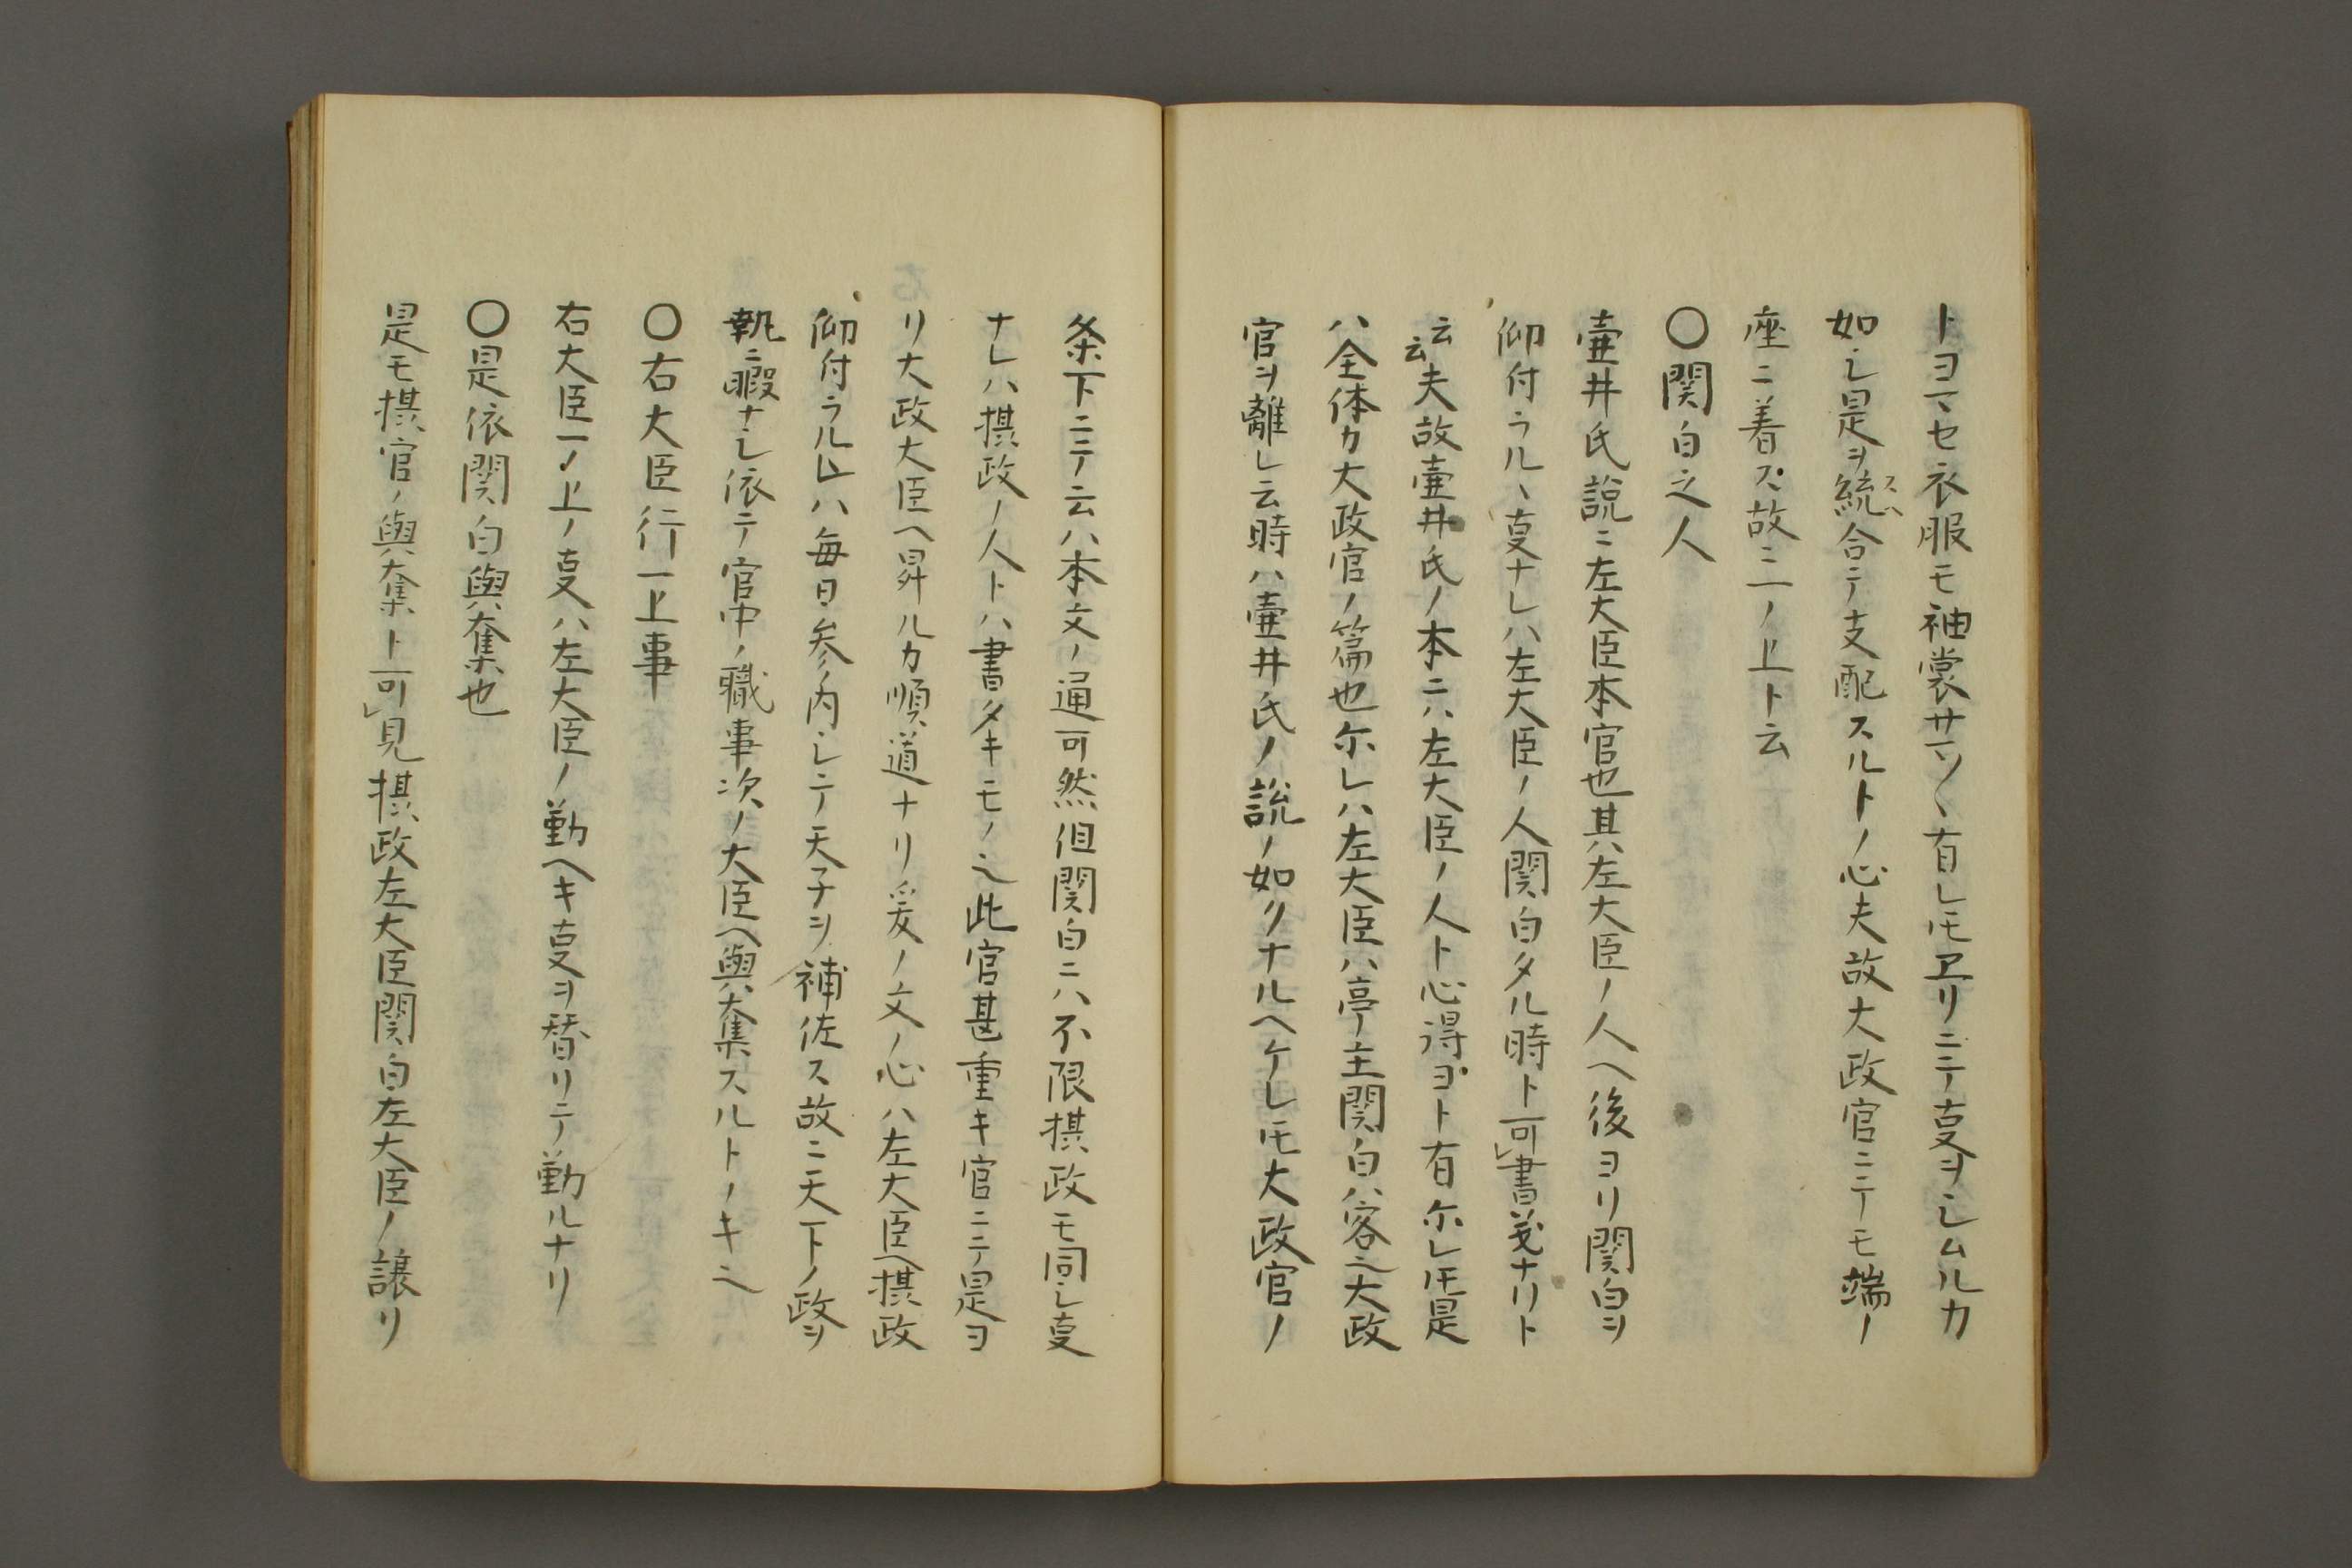 トヨマセ衣服モ袖裳サマ〳〵有レ𪜈ヱリニテ㕝ヲシムルカ
如シ是ヲ統(スヘ)合テ支配スルトノ心夫故大政官ニテモ端ノ
座ニ着ズ故ニ一ノ上ト云
〇関白之人
壷井氏説ニ左大臣本官也其左大臣ノ人ヘ後ヨリ関白ヲ
仰付ラルヽ㕝ナレハ左大臣ノ人関白タル時ト可レ書義ナリト
云云夫故壷井氏ノ本ニハ左大臣ノ人ト心得ヨト有尓レ𪜈是
ハ全体カ大政官ノ篇也尓レハ左大臣ハ亭主関白ハ客也大政
官ヲ離レ云時ハ壷井氏ノ説ノ如クナルヘケレ𪜈大政官ノ
条下ニテ云ハ本文ノ通可然但関白ニハ不限摂政モ同シ㕝
ナレハ摂政ノ人トハ書タキモノ也此官甚重キ官ニテ是ヨ
リ大政大臣ヘ昇ルカ順道ナリ爰ノ文ノ心ハ左大臣ヘ摂政
仰付ラル𪜈ハ毎日参内シテ天子ヲ補佐ス故ニ天下ノ政ヲ
執ニ暇ナシ依テ官中ノ職事次ノ大臣ヘ與奪スルトノキ也
〇右大臣行一上事
右大臣一ノ上ノ㕝ハ左大臣ノ勤ヘキ㕝ヲ替リテ勤ルナリ
〇是依関白與奪也
是モ摂官ノ與奪ト可レ見摂政左大臣関白左大臣ノ譲リ